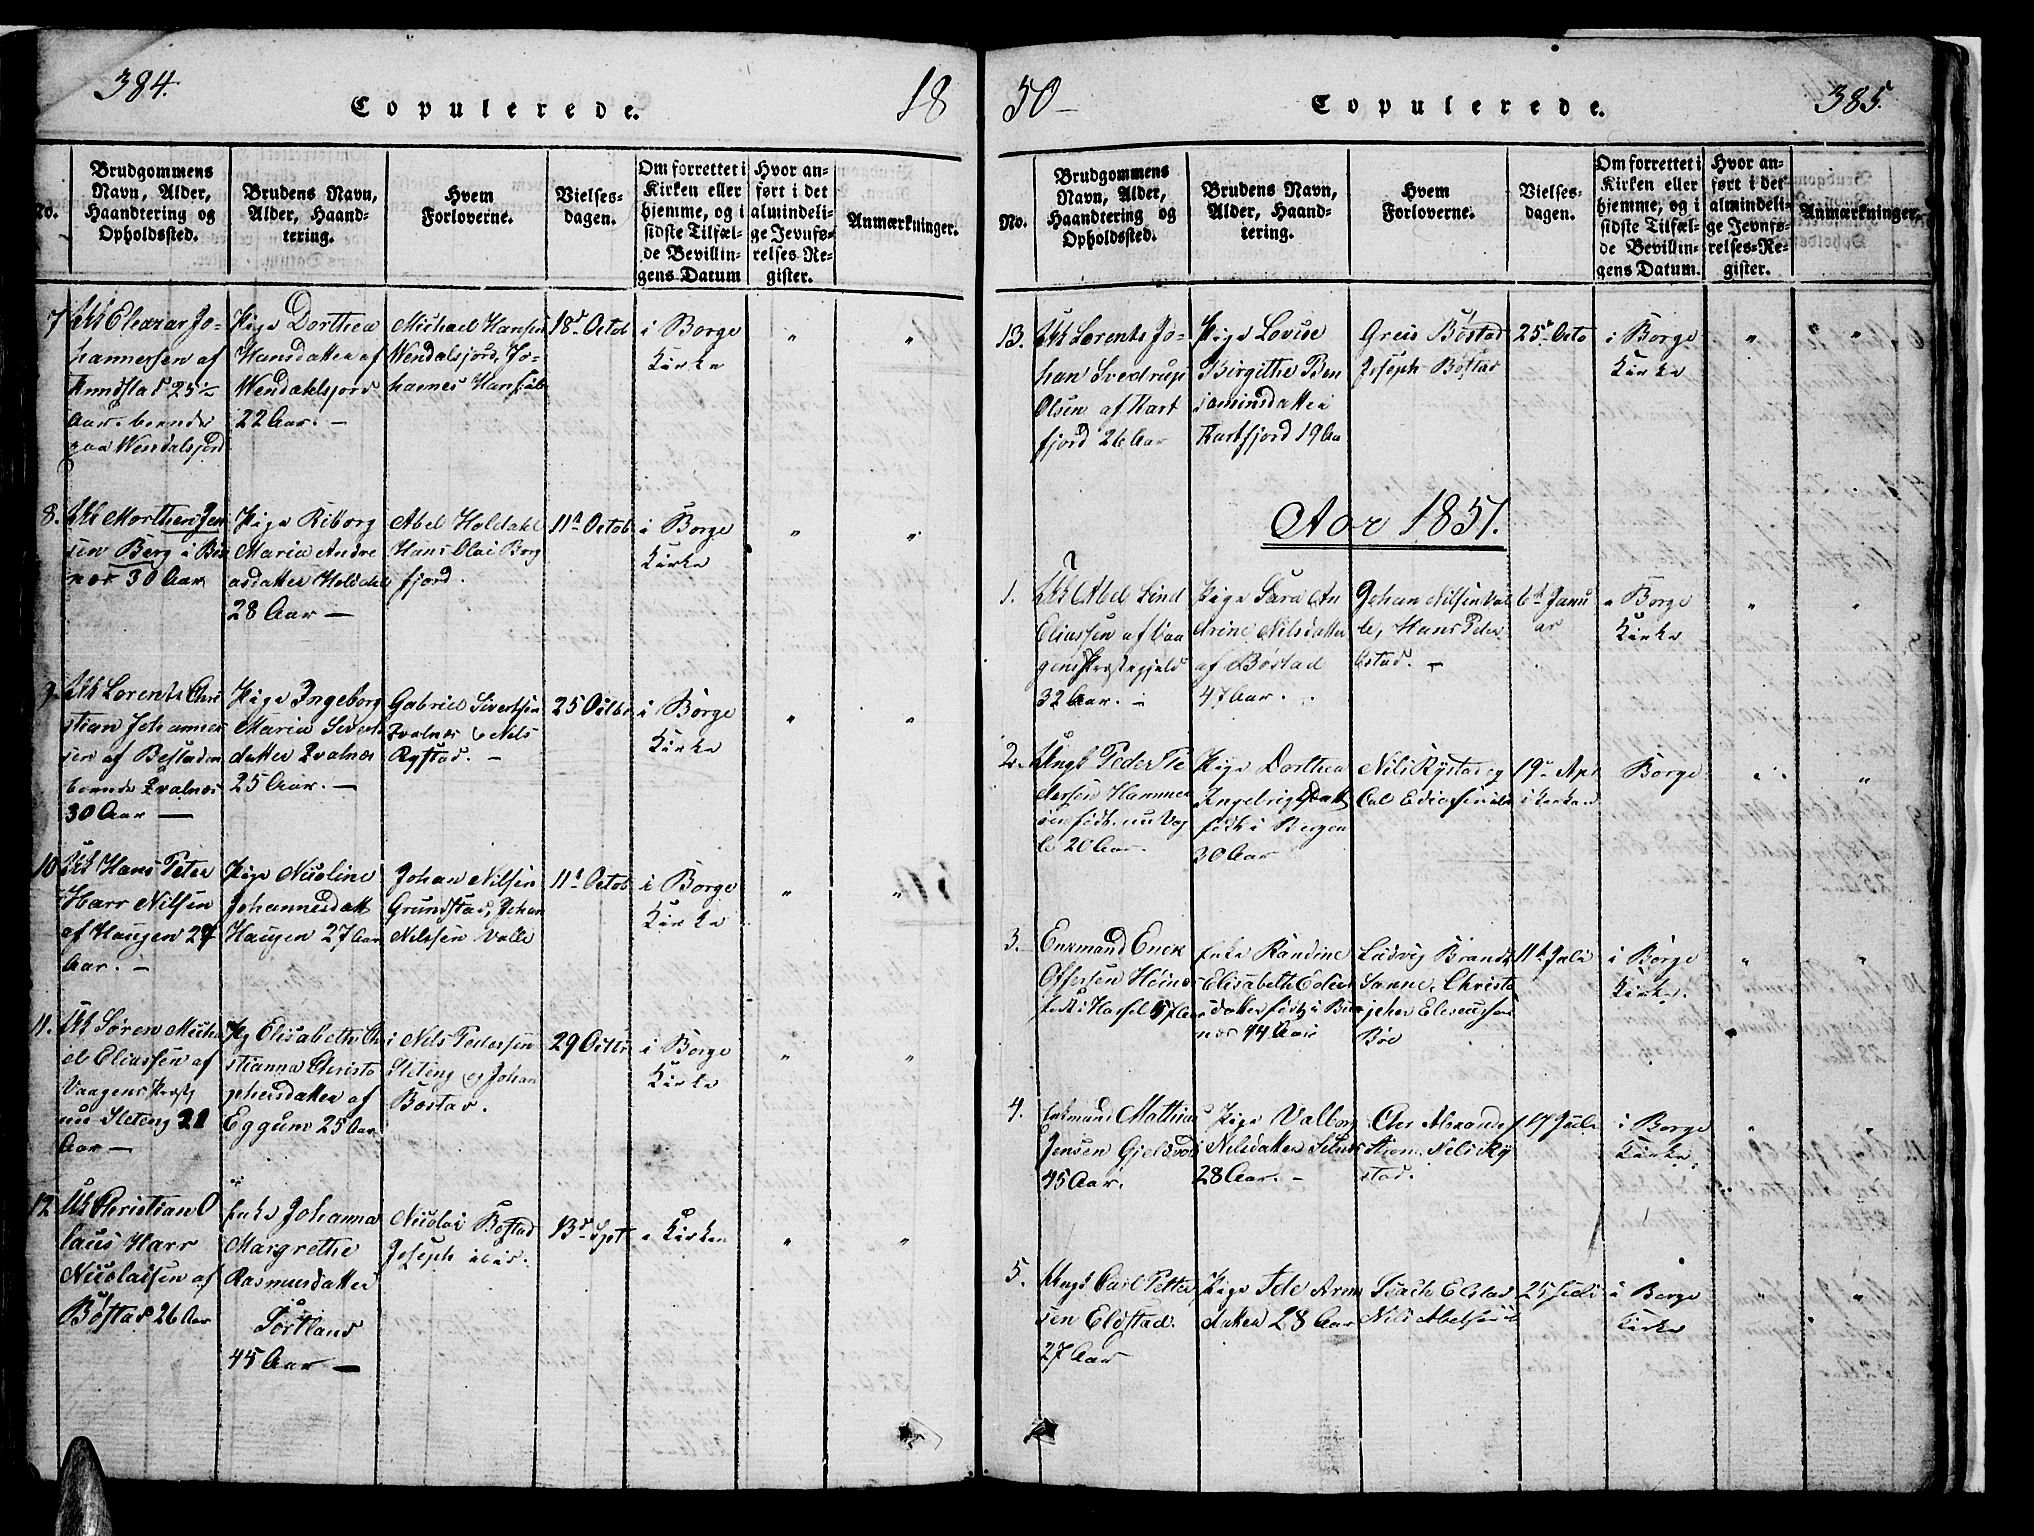 384.
Copulerede.
18
No.
Brudgommens
Navn, Alder,
Haandtering og
Opholdssted.
Brudens Navn,
Alder, Haand-
tering.
Hvem
Forloverne.
Vielses-
dagen.
Om forrettet i
Kirken eller
hjemme, og i
sidste Tilfæl-
de Bevillin-
gens Datum
Hvor an-
ført i det
almindeli-
ge Jevnfø-
relses-Re-
gister.
Anmærkninger.
7
Eleazar Jo-
hannessen af
25
Aar. boende
paa Wendalsjord
Pige Dorthea
Hansdatter af
Wendahlsjord
22 Aar. —
Michael Hansen
Wendalsjord, Jo-
hannes Hansen
18d Octob
i Borge
Kirke
"
"
8.
Morthen Jen
sen Berg i
30 Aar
Pige Riborg
Maria Andre
asdatter Holdahl
28 Aar —
Abel Holdahl
Hans Olai Borg
fjord.
11d Octob
i Borge
Kirke
"
"
9
Lorents Chri
stian Johannes
sen af
boende Zvalnæs
30 Aar —
Pige Ingeborg
Maria Siverts
datter Zvalnæs
25 Aar. —
Gabriel Sivertsen
Zvalnæs Nils
Rystad. —
25 Octbr
i Borge
Kirke
"
"
10
Hans Peter
Harr Nilsen
af Haugen
Aar. —
Pige Nicoline
Johannesdatt
Haugen 27 Aar
Johan Nilsen
Grundstad, Johan
Nilssen Valle
11d Octob
i Borge
Kirke
"
"
11.
Søren Micha
el Eliassen af
Vaagens Præstg
nu Sleteng 21
Aar —
Pg Elisabeth Chr
stianna Christo
phersdatter af
Eggum 25 Aar
Nels Pedersen
Sleteng og Johan
Bostad.
29 Octbr
i Borge
Kirke
"
"
12
Christian O
laus Harr
Nicolaisen af
Bøstad 26 Aar
Enke Johanna
Margrethe
Rasmusdatter
Sortland
45 Aar —
Nicolai Bostad
Joseph ibid.
13d Spt
i Kirken
"
"
50
Copulerede.
385.
No.
Brudgommens
Navn, Alder,
Haandtering og
Opholdssted.
Brudens Navn,
Alder, Haand-
tering.
Hvem
Forloverne.
Vielses-
dagen.
Om forrettet i
Kirken eller
hjemme, og i
sidste Tilfæl-
de Bevillin-
gens Datum.
Hvor an-
ført i det
almindeli-
ge Jevnfø-
relses-Re-
gister.
Anmærkninger.
13.
Lorents Jo-
han Svedrup
Olsen af Kart
fjord 26 Aar
Pige Lovise
Birgithe Ben
jaminsdatter
Kartfjord 19 Aa
Greis Bøstad
Joseph Bøstad
25d Octo
i Borge
Kirke
"
"
Aar 1851.
1.
Abel Lind
Eliassen af Vaa
gens Præstegjeld
32 Aar. —
Pige Sara
Nilsdatter
af Bøstad
47 Aar.
Johan Nilsen Val
le, Hans Peter
6d Janu
ar
i Borge
Kirke
"
"
2.
Ungk Peder Pe
dersen Hammer
20 Aar.
Pige Dorthea
Ingebrigtsdatt
født i Bergen
30 Aar
Nils Rystad og
19d Apr
i Kirken
Borge
"
"
3.
Enkmand
født i Hassel
Enke Randine
Elisabeth
datter født i
44 Aar
Ludvig Brandt
Sanne, Christo
pher
Böe
11d Juli
i Borge
Kirke.
"
"
4.
Enkmand Mathias
Jensen
45 Aar.
Pige Valborg
Nilsdatter
28 Aar. —
Nils Ry
stad.
17 Juli
i Borge
Kirke
"
"
5.
Ungk Carl Petter
sen Elöstad.
27 Aar
Pige
datter 28 Aar
Nils Abelsen
25 Juli
i Borge
Kirke
"
"